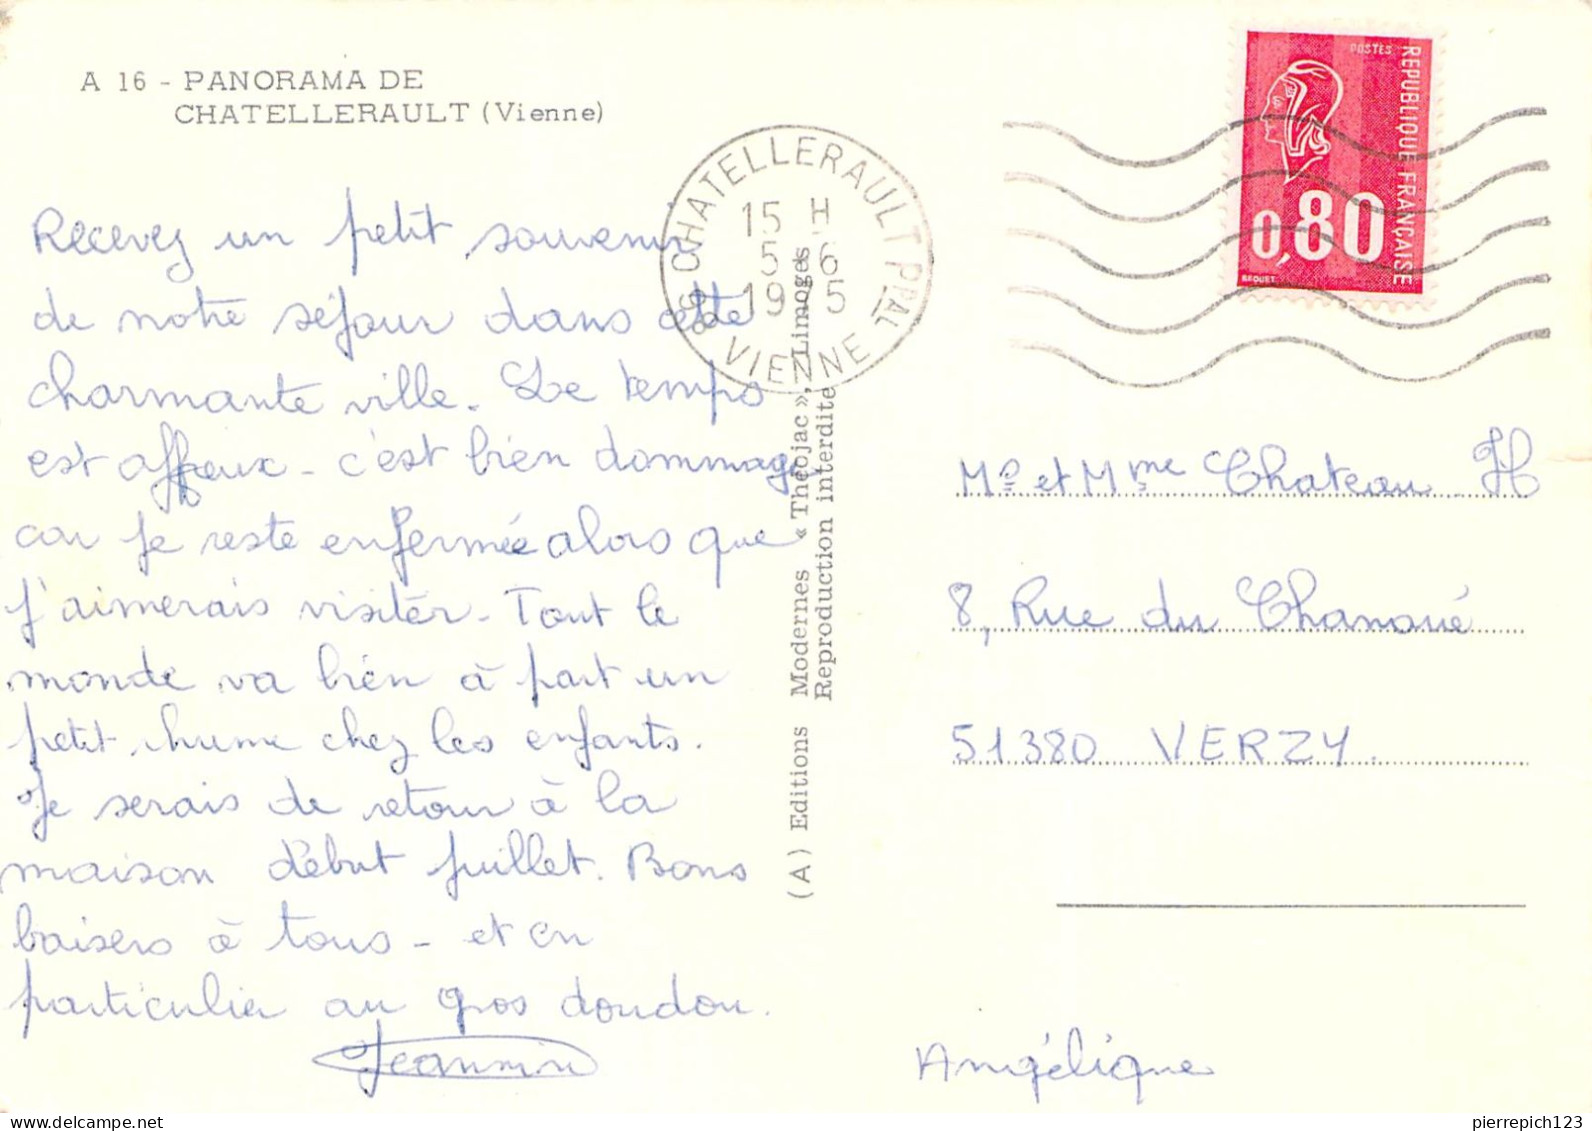 A 16 - PANORAMA DE
CHATELLERAULT (Vienne)
Recevez un petit souvenir
de notre séjour dans cette
charmante ville. Le temps
est affreux - c'est bien dommage
car je reste enfermée alors que
j'aimerais visiter - Tout le
monde va bien à part un
petit rhume chez les enfants.
Je serais de retour à la
maison début juillet. Bons
baisers à tous - et en
particulier au gros doudou.
Jeannin
CHATELLERAULT PPAL
15 H
5 - 6
1975
86 VIENNE
(A) Editions Modernes « Théojac », Limoges
Reproduction interdite
POSTES
REPUBLIQUE FRANÇAISE
0,80
BEQUET
Mr et Mme Chateau H
8, Rue du Chanoué
51380 VERZY.
Angélique
pierrepich123